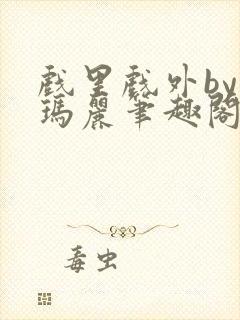 戲里戲外by
瑪麗筆趣閣
毒虫